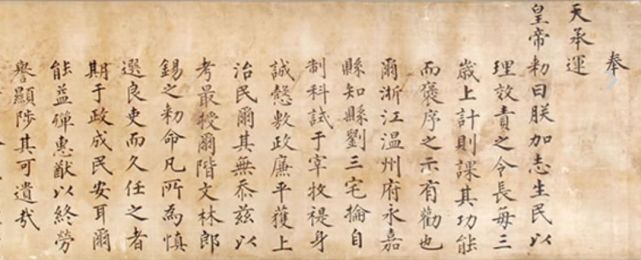 奉
天承運
皇帝勅曰朕加志生民以
理效責之令長每三
歲上計則課其功能
而褒序之示有勸也
爾浙江温州府永嘉
縣知縣劉三宅掄自
制科試于宰牧禔身
誠慤敷政廉平獲上
治民爾其無忝兹以
考最授爾階文林郎
錫之勅命凡所為慎
選良吏而久任之者
期于政成民安耳爾
能益殫惠猷以終勞
譽顯陟其可遺哉